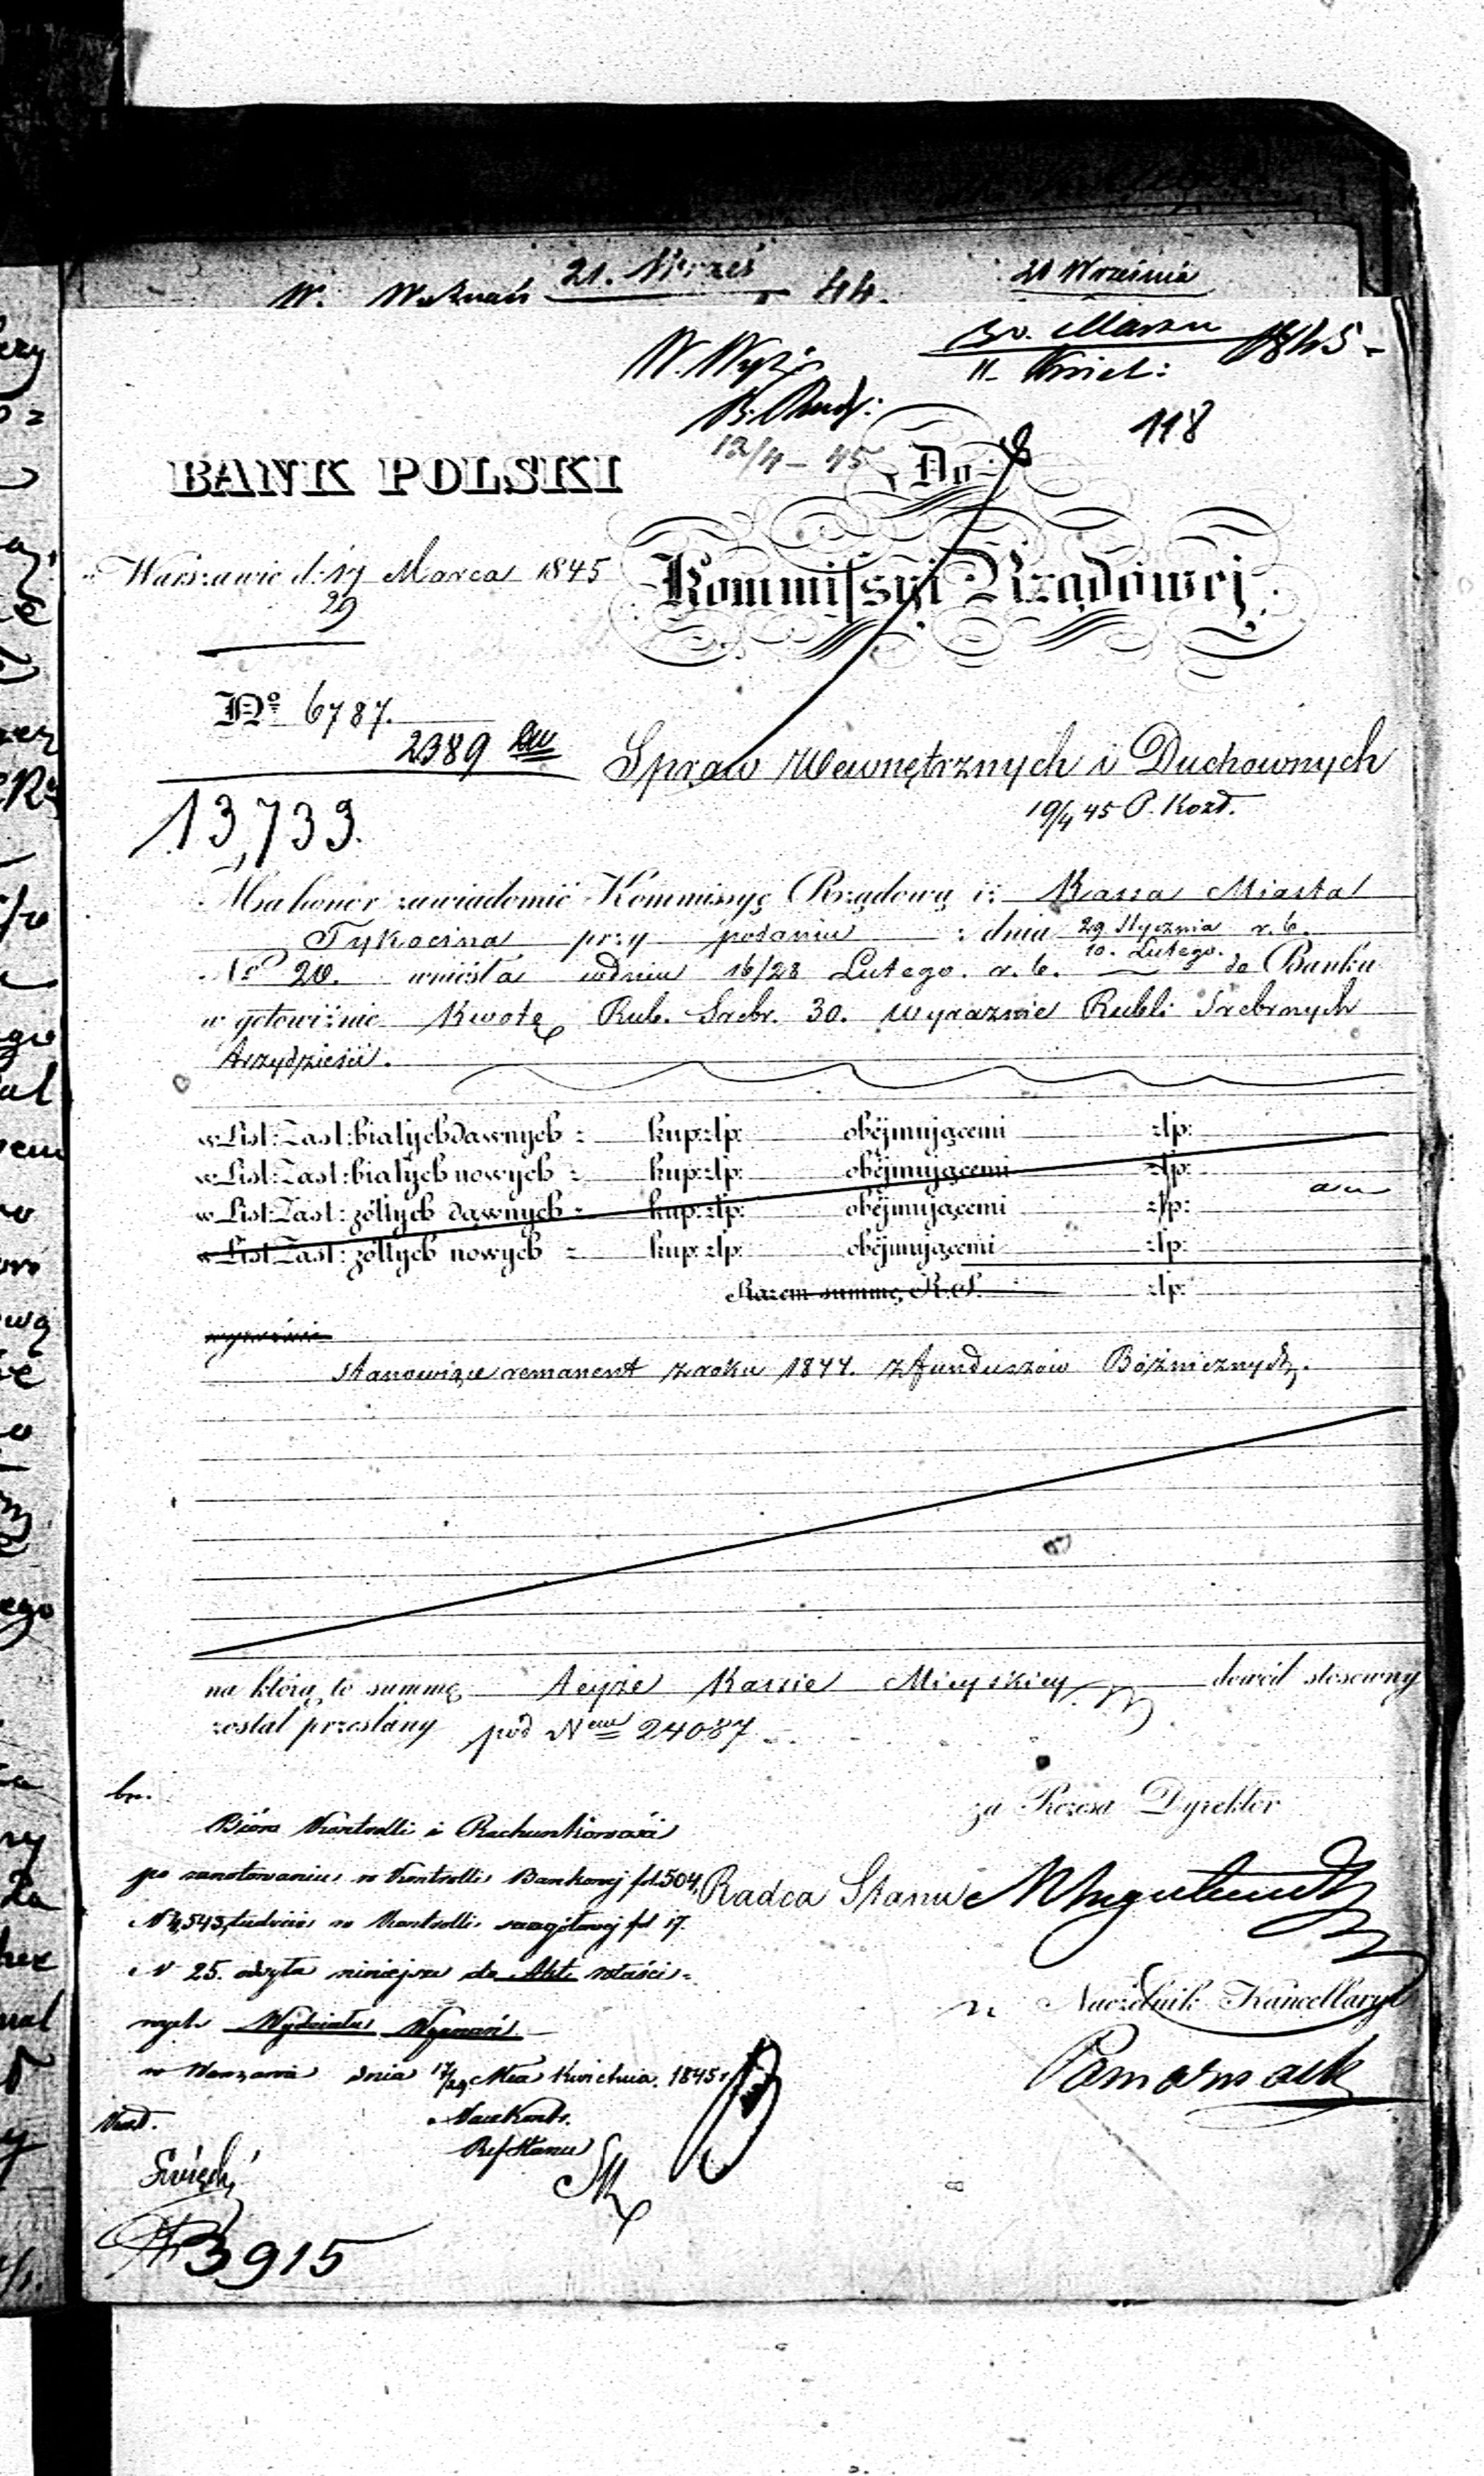 21. Wrześ 44.
21 Września
30. Marca 1845
11. Kwiet:
W. Wyzń
12/4 - 45
118
BANK POLSKI
Do
w Warszawie d: 17 Marca 1845
29
Kommissyi Rządowej
No 6787.
2389
Spraw Wewnętrznych i Duchownych
13,733.
19/4 45 P. Kozł.
Ma honor zawiadomić Kommissyę Rządową iż Kassa Miasta
Tykocina przy podaniu z dnia 29 Stycznia r. b.
10. Lutego.
No 20. wniosła wdniu 16/28 Lutego. r. b. do Banku
w gotowiźnie Kwotę Rub. Srebr. 30. wyraznie Rubli Srebrnych
trzydzieści.
w List: Zast: białych dawnych z kup: złp: obejmującemi złp:
w List: Zast: białych nowych z kup: złp: obejmującemi złp:
w List: Zast: żółtych dawnych z kup: złp: obejmującemi złp:
w List: Zast: żółtych nowych z kup: złp: obejmującemi złp:
Razem summę R. S. złp:
wyraźnie
stanowiące remanent z roku 1844. z funduszów Bóżnicznych.
na którą to summę teyże Kassie Mieyskiey dowód stosowny
został przesłany pod Nem 24087
bu.
za Prezesa Dyrektor
Bióro Kontrolli i Rachunkowości
po zanotowaniu w Kontrolli Bankowej fol. 504,
Radca Stanu
N 4,543, tudzież w Kontrolli szczegółowej fol 17.
N 25. odsyła niniejsze do Akt właści-
nych Wydziału Wyznań
Naczelnik Kancellaryi
w Warszawie dnia 17/29 Mca Kwietnia. 1845 r
Nacz Kontr.
Ref Stanu
Święcki
3915